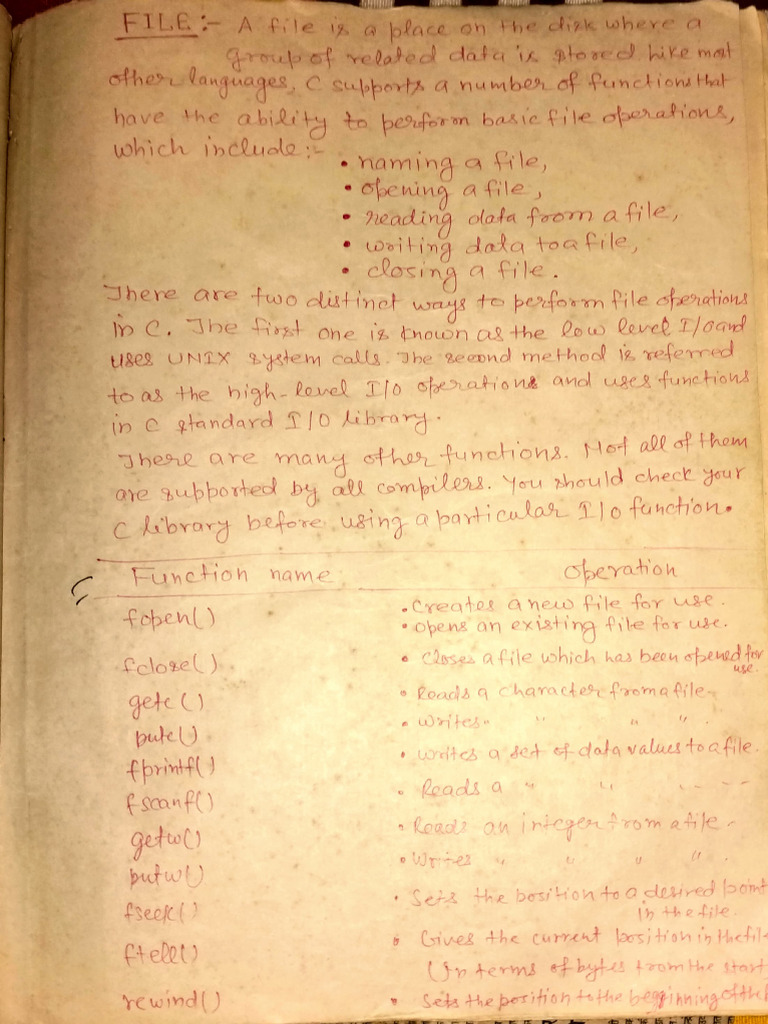 FILE:- A file is a place on the disk where a
group of related data is stored. Like most
other languages, C supports a number of functions that
have the ability to perform basic file operations,
which include:-
• naming a file,
• opening a file,
• reading data from a file,
• writing data to a file,
• closing a file.
There are two distinct ways to perform file operations
in C. The first one is known as the low level I/O and
uses UNIX system calls. The second method is referred
to as the high-level I/O operations and uses functions
in C standard I/O library.
There are many other functions. Not all of them
are supported by all compilers. You should check your
C library before using a particular I/O function.
Function name Operation
fopen() • Creates a new file for use.
• opens an existing file for use.
fclose() • Closes a file which has been opened for
use.
getc() • Reads a character from a file.
putc() • Writes " " " "
fprintf() • writes a set of data values to a file.
fscanf() • Reads a " " " "
getw() • Reads an integer from a file.
putw() • Writes " " " "
fseek() • Sets the position to a desired point
in the file.
ftell() • Gives the current position in the file
(In terms of bytes from the start
rewind() • Sets the position to the beggining of the